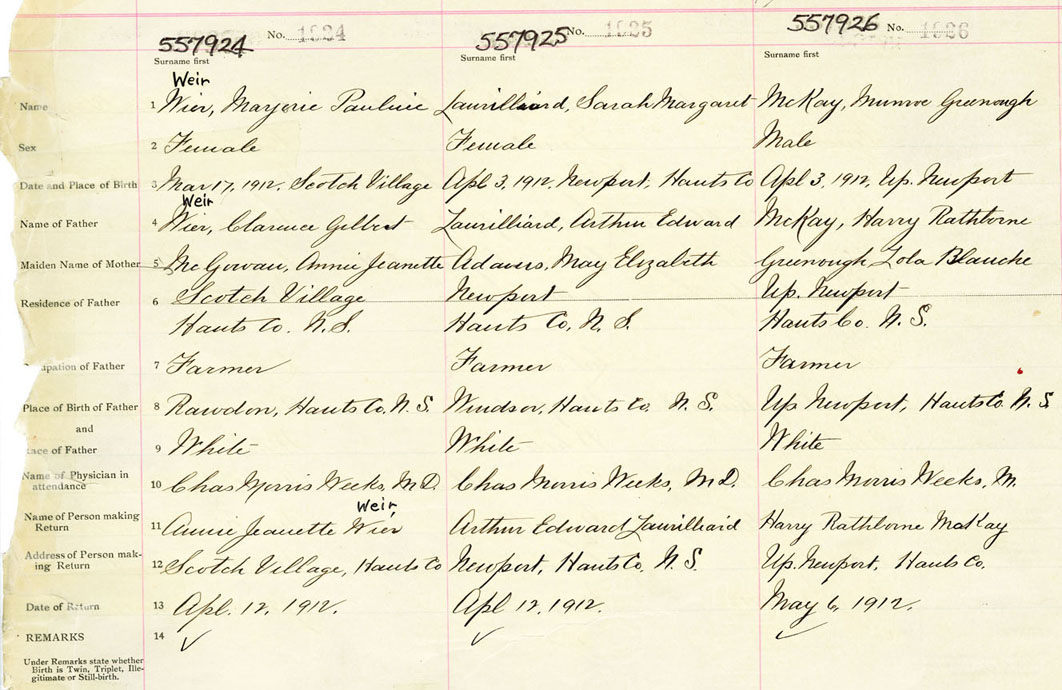 557924 No. 1924 557925 No. 1925 557926 No. 1926
Surname first Surname first Surname first
Weir
Name 1 Wier, Marjorie Pauline Laurilliard, Sarah Margaret McKay, Munroe Greenough
Sex 2 Female Female Male
Date and Place of Birth 3 Mar 17, 1912, Scotch Village Apl 3, 1912, Newport, Hants Co Apl 3, 1912, Up. Newport
Weir
Name of Father 4 Wier, Clarence Gilbert Laurilliard, Arthur Edward McKay, Harry Rathborne
Maiden Name of Mother 5 McGowan, Annie Jeanette Adams, May Elizabeth Greenough Zola Blauche
Residence of Father 6 Scotch Village Newport Up. Newport
Hants Co. N. S. Hants Co, N. S. Hants Co. N. S.
upation of Father 7 Farmer Farmer Farmer
Place of Birth of Father 8 Rawdon, Hants Co, N. S. Windsor, Hants Co. N. S. Up Newport, Hants Co. N. S
and
ace of Father 9 White White White
Name of Physician in
attendance 10 Chas Morris Weeks, M.D. Chas Morris Weeks, M.D. Chas Morris Weeks, M.
Weir
Name of Person making
Return 11 Annie Jeanette Wier Arthur Edward Laurilliard Harry Rathborne McKay
Address of Person mak-
ing Return 12 Scotch Village, Hants Co Newport, Hants Co, N. S. Up. Newport, Hants Co.
Date of Return 13 Apl. 12, 1912. Apl 12, 1912. May 6, 1912.
REMARKS 14 ✓ ✓ ✓
Under Remarks state whether
Birth is Twin, Triplet, Ille-
gitimate or Still-birth.